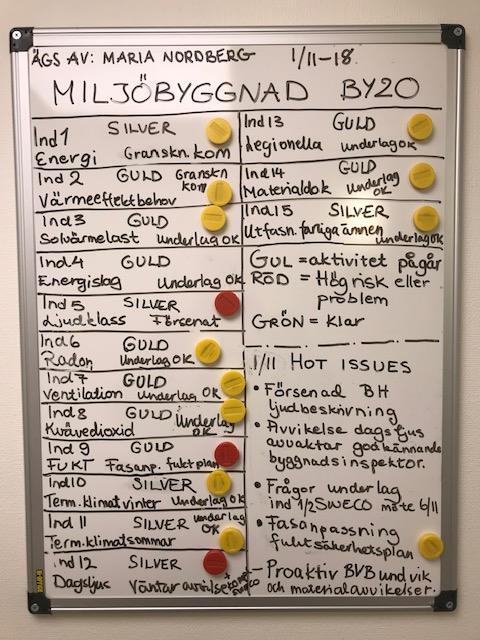 ÄGS AV: MARIA NORDBERG 1/11-18
MILJÖBYGGNAD BY20
Ind 1 SILVER
Energi Granskn. kom
Ind 2 GULD Granskn kom
Värmeeffektbehov
Ind 3 GULD
Solvärmelast Underlag OK
Ind 4 GULD
Energislag Underlag OK
Ind 5 SILVER
Ljudklass Försenat
Ind 6 GULD
Radon Underlag OK
Ind 7 GULD
Ventilation underlag OK
Ind 8 GULD Underlag
Kvävedioxid OK
Ind 9 GULD
FUKT Fasanp. fuktplan
Ind 10 SILVER
Term. klimat vinter Underlag OK
Ind 11 SILVER underlag OK
Term. klimat sommar
Ind 12 SILVER
Dagsljus Väntar avvikelse + kompl sweco
Ind 13 GULD
Legionella underlag OK
Ind 14 GULD
Materialdok Underlag OK
Ind 15 SILVER
Utfasn. farliga ämnen underlag OK
GUL = aktivitet pågår
RÖD = Hög risk eller
problem
GRÖN = Klar
1/11 HOT ISSUES
• Försenad BH
ljudbeskivning
• Avvikelse dagsljus
avvaktar godkännande
byggnadsinspektor.
• Frågor underlag
ind 1/2 SWECO möte 6/11
• Fasanpassning
fuktsäkerhetsplan
- Proaktiv BVB undvik
och materialavvikelser.